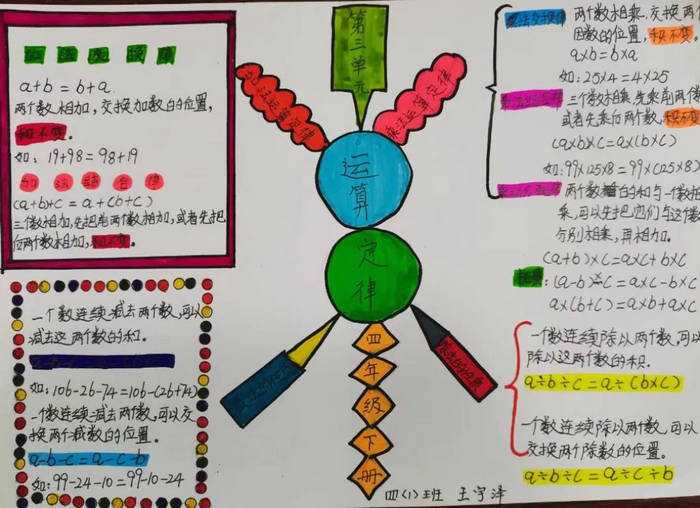 第三单元
运算
定律
四年级下册
加法运算定律
乘法运算定律
加法交换律
a+b=b+a
两个数相加,交换加数的位置,
和不变。
如: 19+98=98+19
加法结合律
(a+b+c=a+(b+c)
三个数相加,先把前两个数相加,或者先把
后两个数相加,和不变。
一个数连续减去两个数,可以
减去这两个数的和。
如:106-26-74=106-(26+74)
一个数连续减去两个数,可以交
换两个减数的位置。
a-b-c=a-c-b
如:99-24-10=99-10-24
乘法交换律
两个数相乘,交换两个
因数的位置,积不变。
a×b=b×a
如:25×4=4×25
三个数相乘,先乘前两个数
或者先乘后两个数,积不变
(a×b×c=a×(b×c)
如:99×125×8=99×(125×8)
两个数的和与一个数相
乘,可以先把它们与这个数
分别相乘,再相加。
(a+b)×c=a×c+b×c
:(a-b)×c=a×c-b×c
a×(b+c)=a×b+a×c
一个数连续除以两个数,可以
除以这两个数的积。
a÷b÷c=a÷(b×c)
一个数连续除以两个数,可以
交换两个除数的位置。
a÷b÷c=a÷c÷b
四(1)班 王宇泽